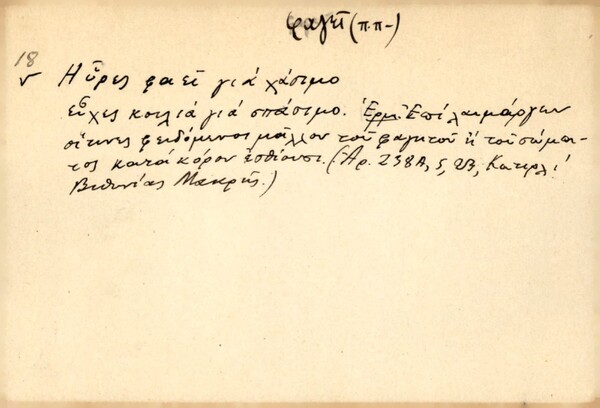 φαγεῖ (π.π-)
18
ν Ηὗρες φαεῖ γιά χάσιμο
εὗχες κοιλιά γιά σπάσιμο. Ἑρμ. Ἐπί λαιμάργων
οἵτινες φειδόμενοι μᾶλλον τοῦ φαγητοῦ ἤ τοῦ σώμα-
τος κατά κόρον ἐσθίουσι. (Ἀρ. 238Α, 5, 23, Κατιρλί
Βιθυνίας Μακρῆς.)